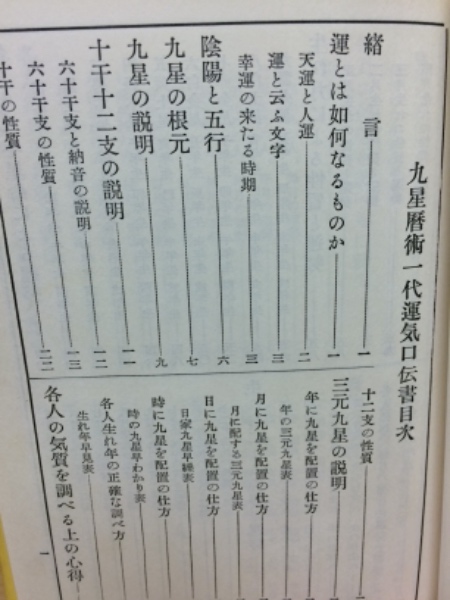 九星暦術一代運気口伝書目次
緒言 一
運とは如何なるものか 一
天運と人運 二
運と云ふ文字 三
幸運の来たる時期 三
陰陽と五行 六
九星の根元 七
九星の説明 九
十干十二支の説明 一一
六十干支と納音の説明 一三
六十干支の性質 二二
十干の性質
十二支の性質
三元九星の説明
年に九星を配置の仕方
年の三元九星表
月に九星を配置の仕方
月に配する三元九星表
日に九星を配置の仕方
日家九星早繰表
時に九星を配置の仕方
時の九星早わかり表
各人生れ年の正確な調べ方
生れ年早見表
各人の気質を調べる上の心得
一